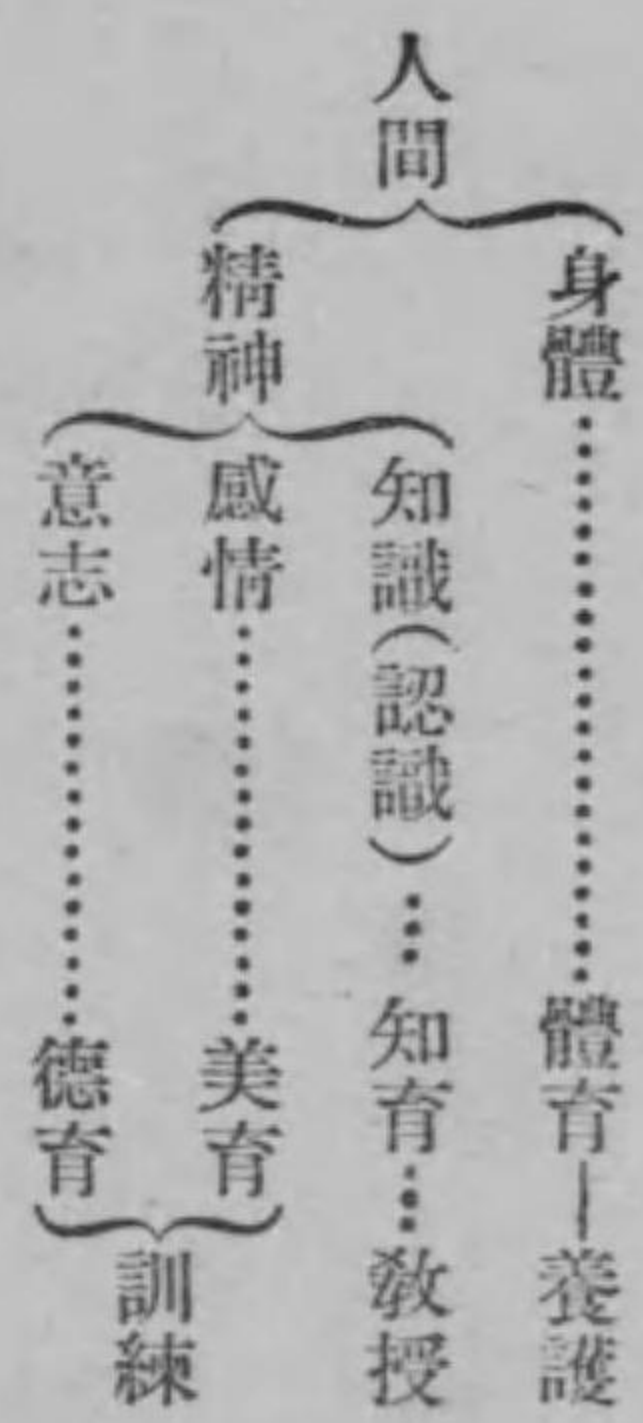 人間
身體……體育―養護
精神
知識(認識)…知育…敎授
感情……美育
意志……德育
訓練